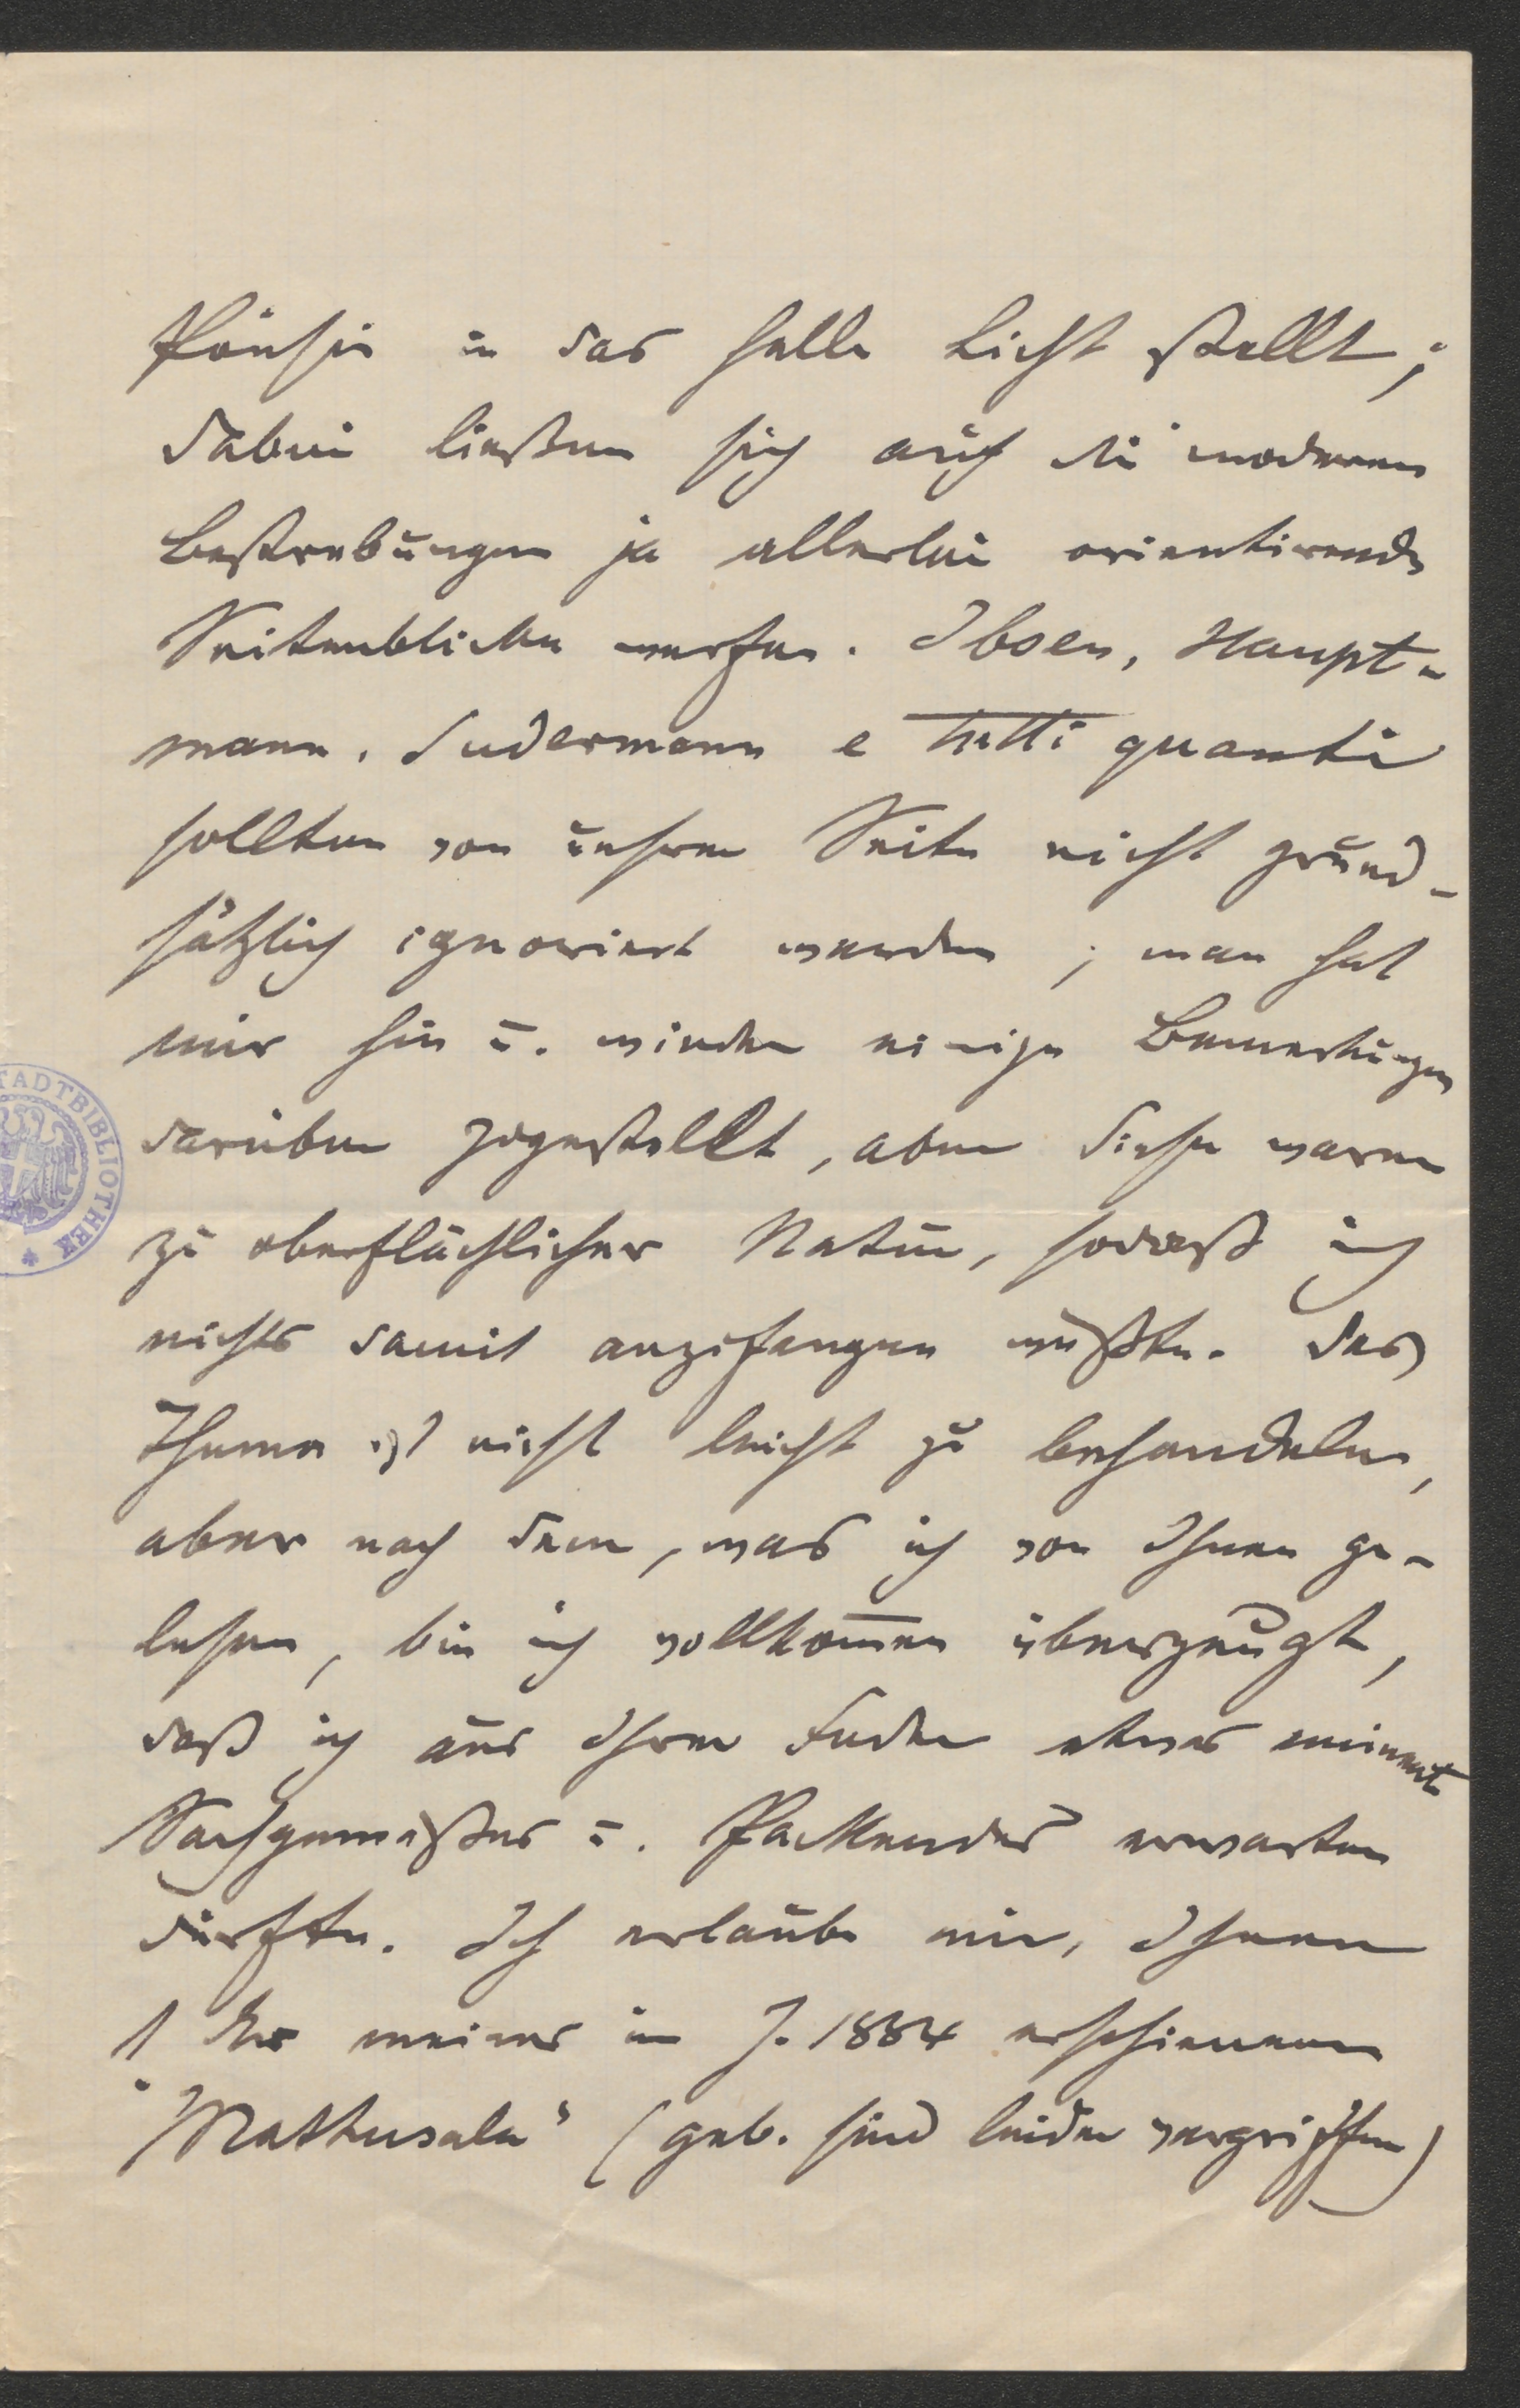 Poësie in das helle Licht stellt;
dabei ließen sich auf die modernen
Bestrebungen ja allerlei orientirende
Seitenblicke werfen. Ibsen, Haupt-
mann, Sudermann e tutti quanti
sollten von unserer Seite nicht grund-
sätzlich ignoriert werden; man hat
mir hin u. wieder einige Bemerkungen
darüber zugestellt, aber diese waren
zu oberflächlicher Natur, sodaß ich
nichts damit anzufangen wußte. Das
Thema ist nicht leicht zu behandeln,
aber nach dem, was ich von Ihnen ge-
lesen, bin ich vollkommen überzeugt,
daß ich aus Ihrer Feder etwas eminent
Sachgemäßes u. Packendes erwarten
dürfte. Ich erlaube mir, Ihnen
1 Ex meines im J. 1884 erschienenen
"Methusala" (geb. sind leider vergriffen)
STADTBIBLIOTHEK